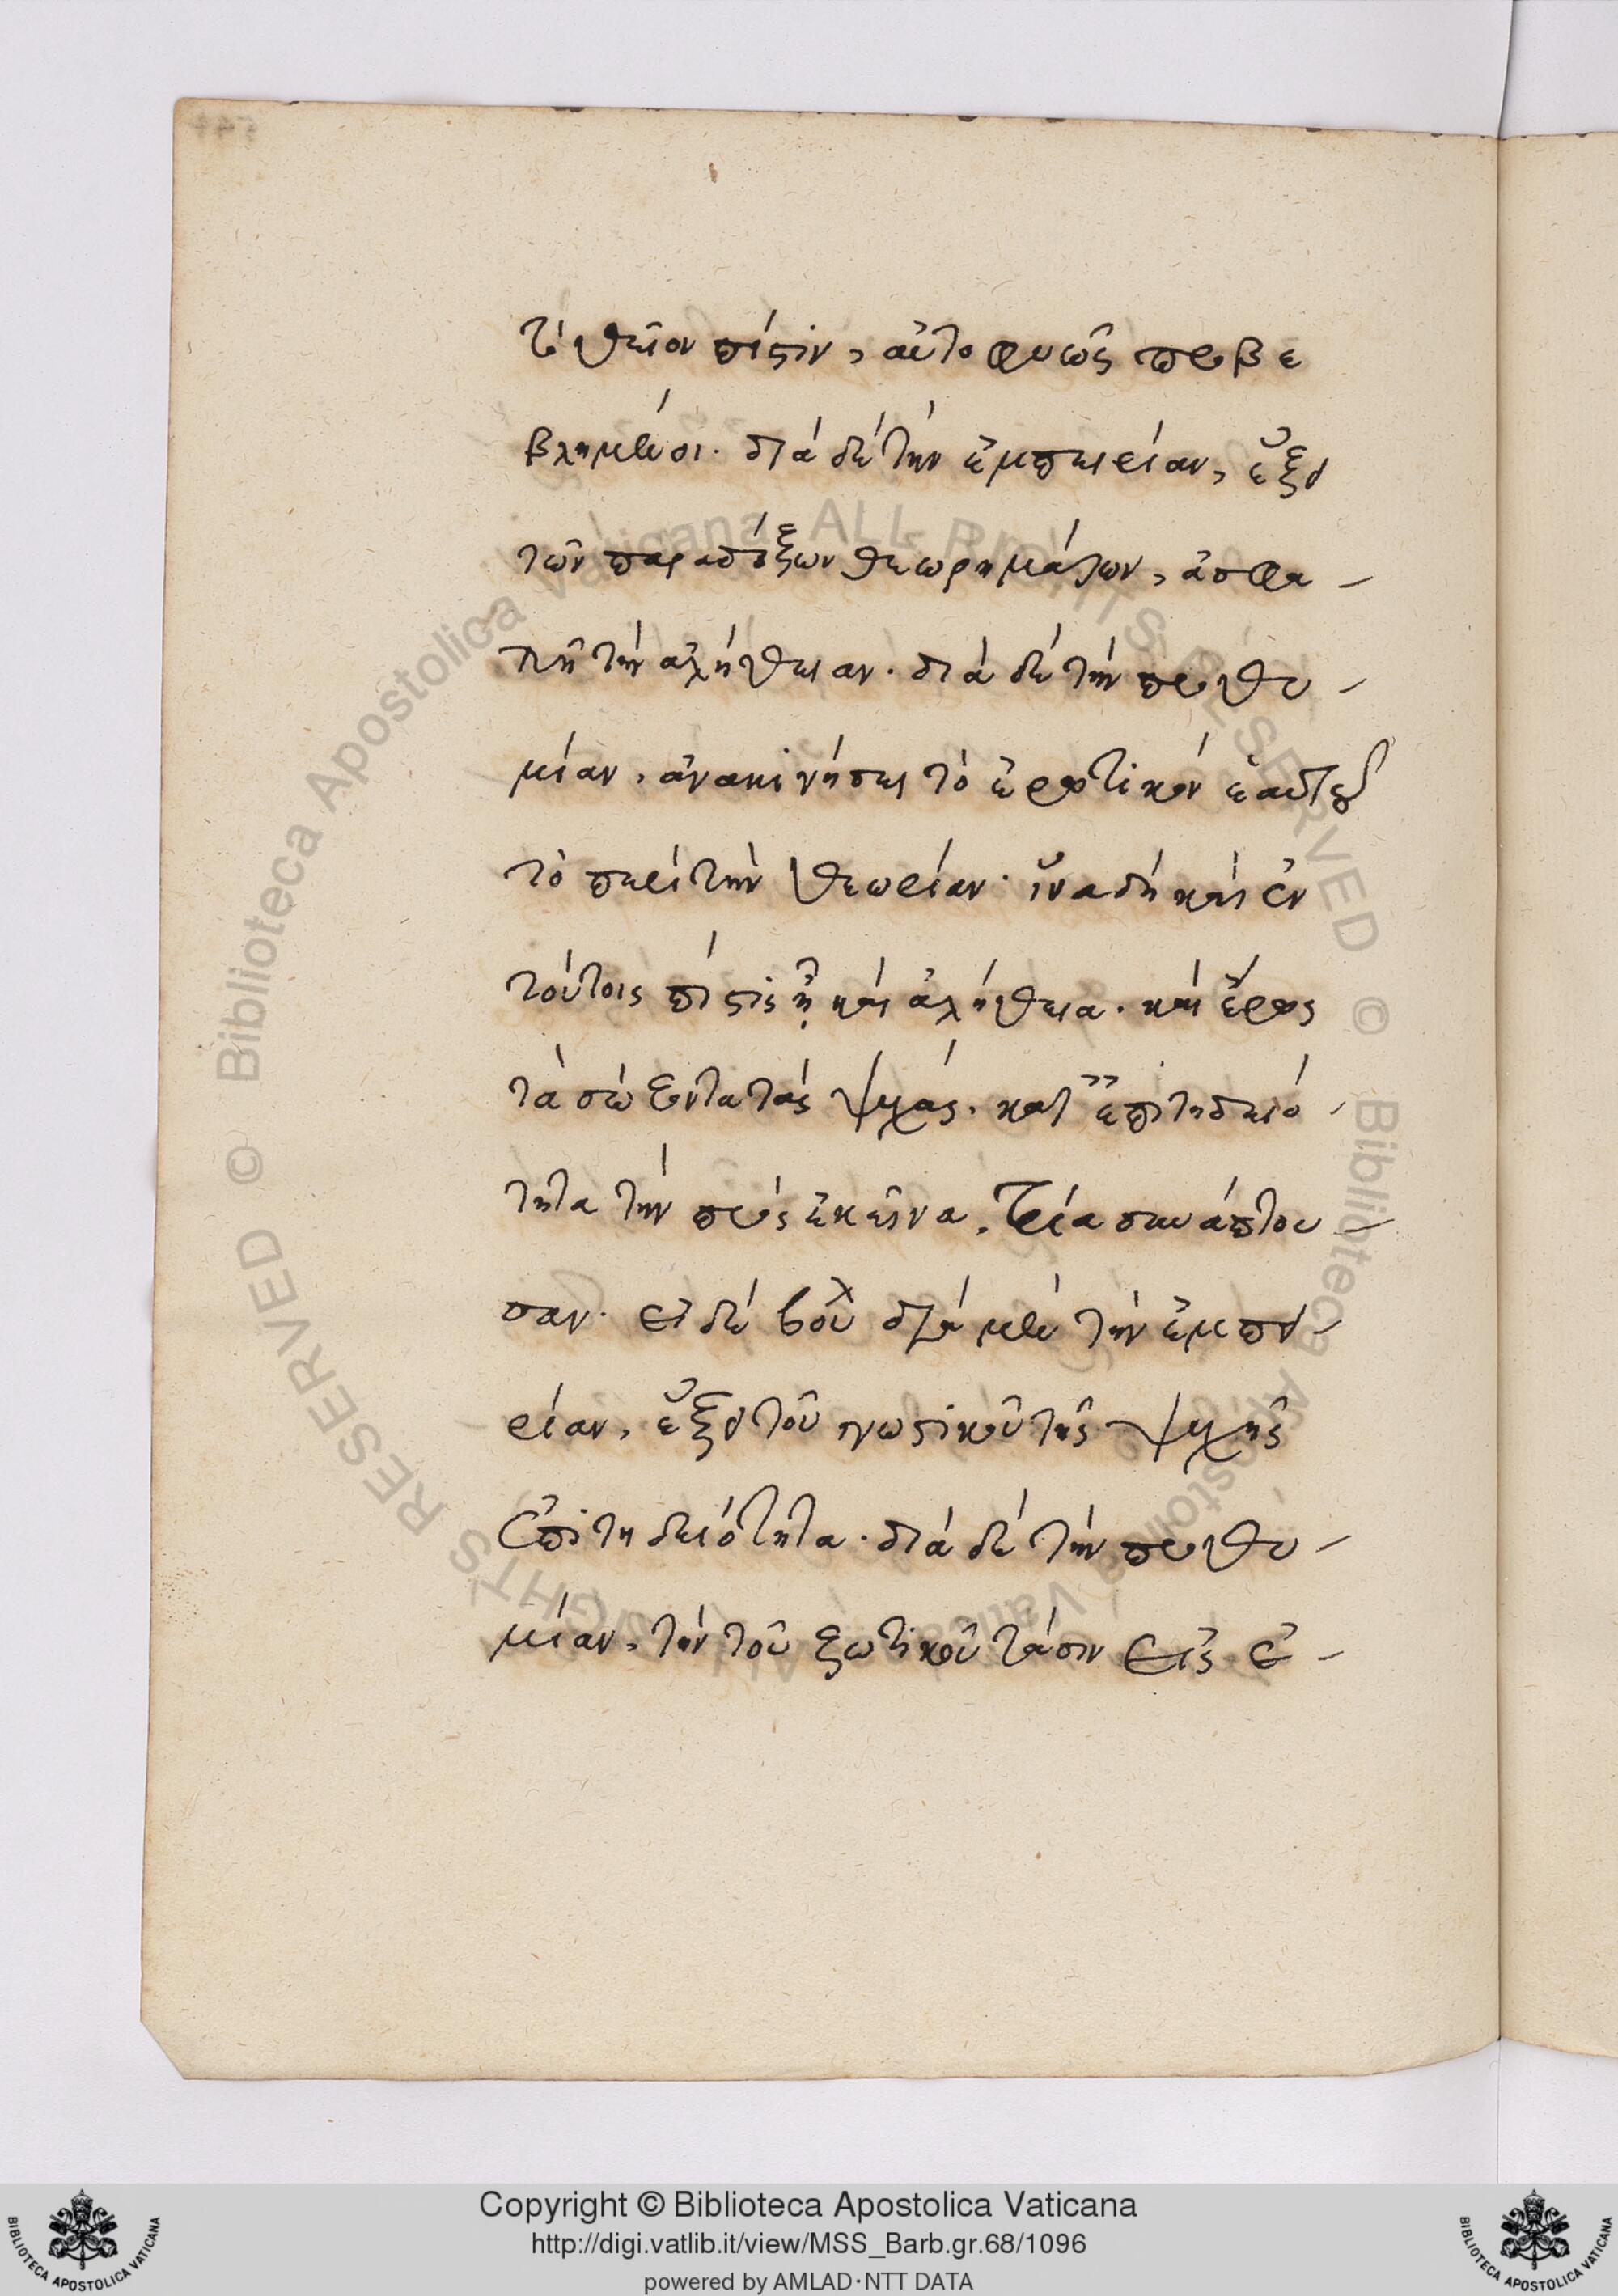 τὸ θεῖον πίστιν, αὐτοφυῶς προβε
βλημένοι. διὰ δὲ τὴν ἐμπειρίαν, ἕξει
τῶν παραδόξων θεωρημάτων, ἀσφα –
λῆ τὴν ἀλήθειαν. διὰ δὲ τὴν προθυ –
μίαν, ἀνακινήσει τὸ ἐρωτικὸν ἑαυτοῦ
τὸ περὶ τὴν θεωρίαν. ἵνα δὴ καὶ ἐν
τούτοις πίστις ᾖ καὶ ἀλήθεια. καὶ ἔρως
τὰ σώζοντα τὰς ψυχάς. κατ' ἐπιτηδειό –
τητα τὴν πρὸς ἐκεῖνα, τρία συνάπτου –
σαν. εἰ δὲ βούλει διὰ μὲν τὴν ἐμπει –
ρίαν, ἕξει τοῦ γνωστικοῦ τῆς ψυχῆς
ἐπιτηδειότητα. διὰ δὲ τὴν προθυ –
μίαν, τὴν τοῦ ζωτικοῦ τάσιν εἰς ἐ –
Copyright © Biblioteca Apostolica Vaticana
http://digi.vatlib.it/view/MSS_Barb.gr.68/1096
powered by AMLAD·NTT DATA
BIBLIOTECA APOSTOLICA VATICANA
BIBLIOTECA APOSTOLICA VATICANA
© Biblioteca Apostolica Vaticana ALL RIGHTS RESERVED
© Biblioteca Apostolica Vaticana ALL RIGHTS RESERVED